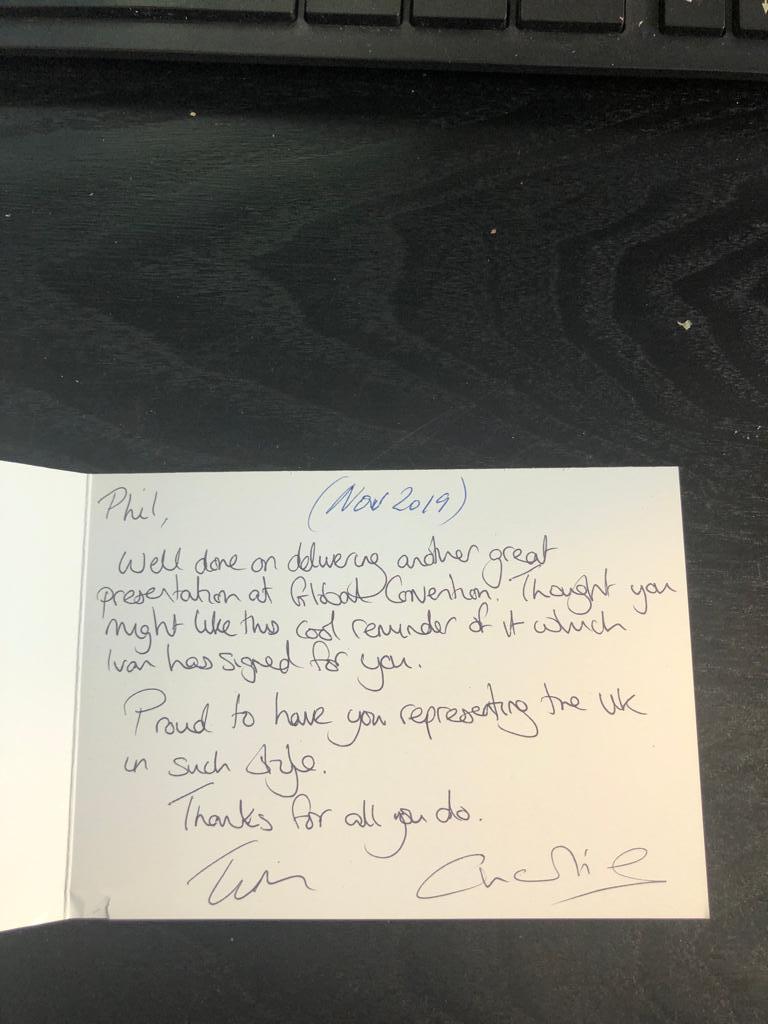 Phil,
(Nov 2019)
Well done on delivering another great
presentation at Global Convention. Thought you
might like this cool reminder of it which
Ivan has signed for you.
Proud to have you representing the UK
in such style.
Thanks for all you do.
Tim
Charlie